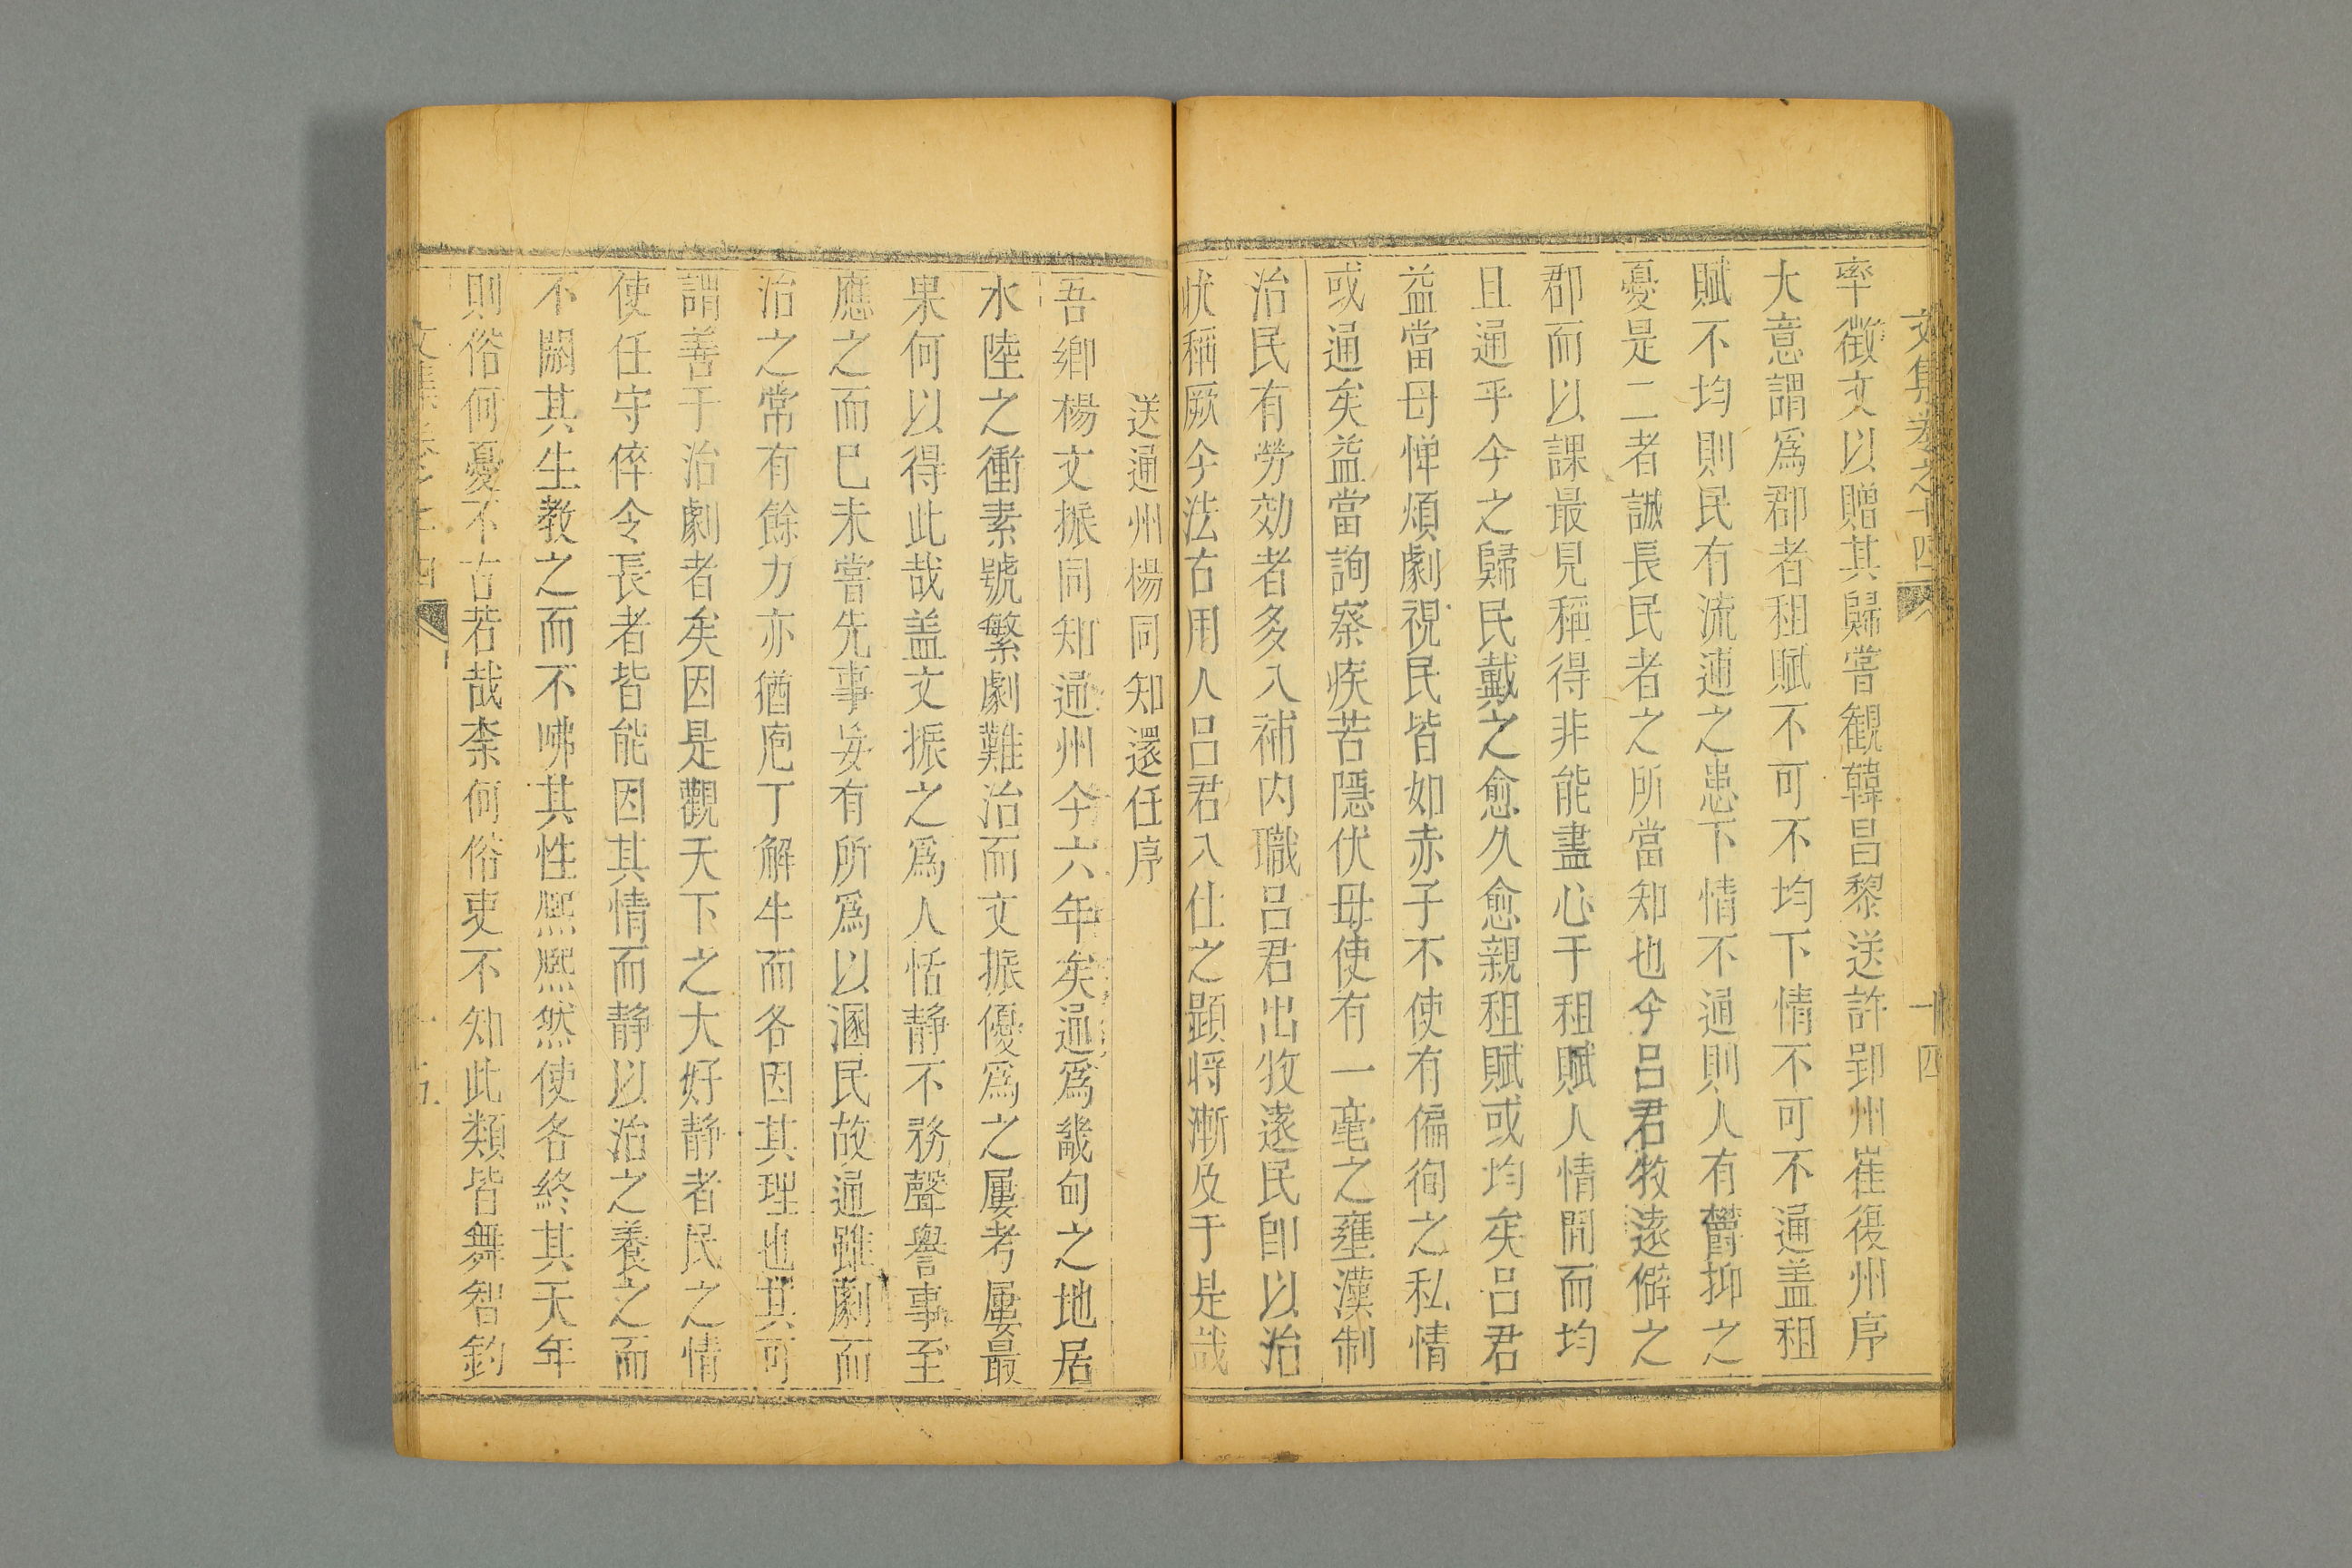 文集卷之十四 十四
率徵文以贈其歸嘗観韓昌黎送許郢州崔復州序
大意謂爲郡者租賦不可不均下情不可不通盖租
賦不均則民有流逋之患下情不通則人有欝抑之
憂是二者誠長民者之所當知也今呂君牧遠僻之
郡而以課最見稱得非能盡心于租賦人情間而均
且通乎今之歸民戴之愈久愈親租賦或均矣呂君
益當毋憚煩劇視民皆如赤子不使有偏徇之私情
或通矣益當詢察疾苦隱伏毋使有一毫之壅漢制
治民有勞効者多入補内職呂君出牧遠民卽以治
狀稱厥今法古用人呂君入仕之顕将漸及于是哉
送通州楊同知還任序
吾鄉楊文振同知通州今六年矣通爲畿甸之地居
水陸之衝素號繁劇難治而文振優爲之屢考屢最
果何以得此哉盖文振之爲人恬静不務聲譽事至
應之而已未嘗先事妄有所爲以溷民故通雖劇而
治之常有餘力亦猶庖丁解牛而各因其理也其可
謂善于治劇者矣因是觀天下之大好静者民之情
使任守倅令長者皆能因其情而静以治之養之而
不關其生教之而不咈其性熈熈然使各終其天年
則俗何憂不古若哉柰何俗吏不知此類皆舞智釣
文集卷之十四 十五